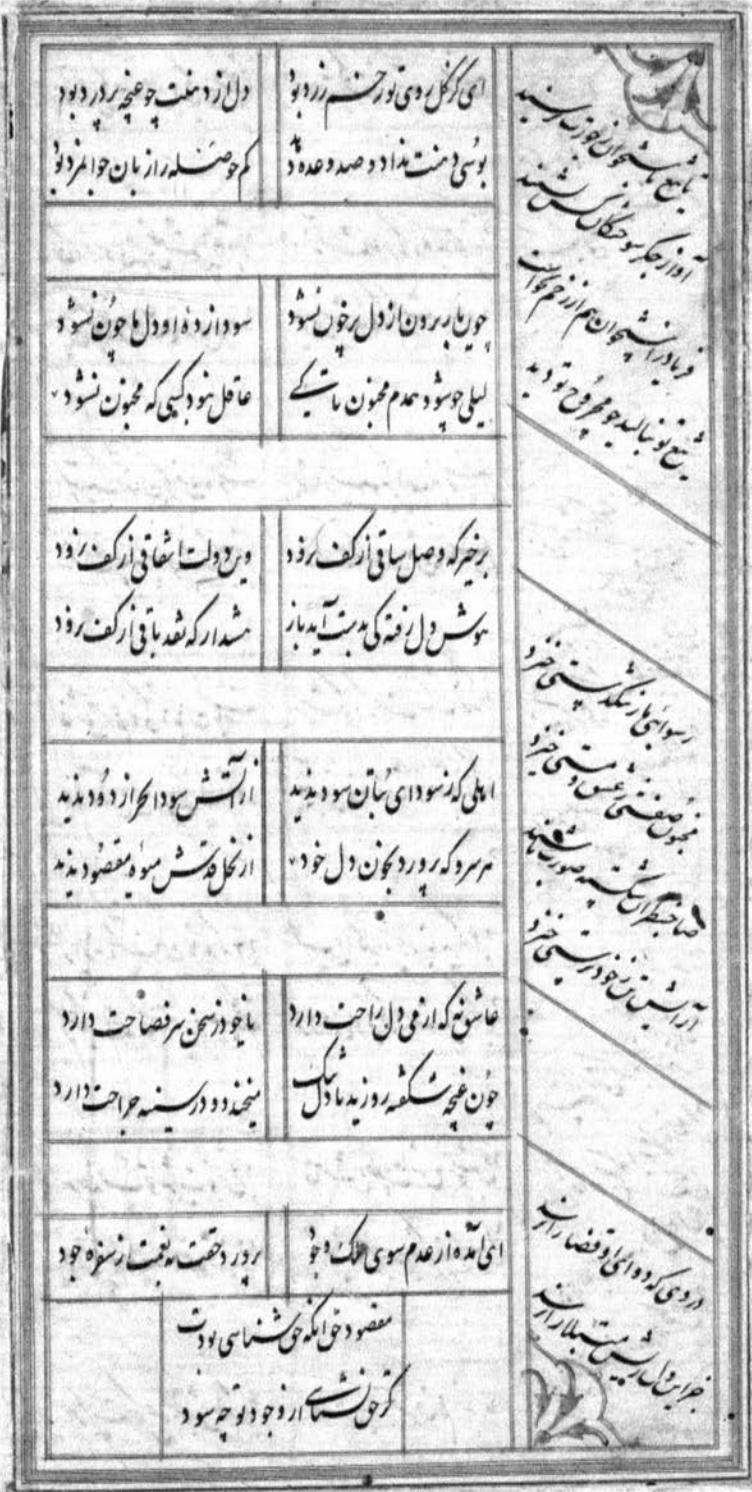 ای کز گل روی تو رخم زرد بود دل از دهنت چو غنچه پر درد بود
بوسی دهنت نداد و صد وعده کم حوصله را زبان جوانمرد بود
چون یار برون از دل پرخون نشود سودازده او دل ما چون نشود
لیلی چو شود همدم مجنون یکی عاقل نبود کسی که مجنون نشود
برخیز که وصل ساقی از کف نرود وین دولت اتفاقی از کف نرود
هوش دل رفته کی بدست آید باز هشدار که نقد باقی از کف نرود
اهلی که ز سودای بتان سود ندید از آتش سودا بجز از دود ندید
هر سرو که پرورد بخون دل خود از نخل قدش میوه مقصود ندید
عاشق نه که از می دل راحت دارد یا خود ز سخن سر فصاحت دارد
چون غنچه شکفته رو زید با دل تنگ میخندد و در سینه جراحت دارد
ای آمده از عدم سوی ملک وجود پرورد حقت به نعمت از سفره جود
مقصود حق آنکه حق شناسی بودت
گر حق نشناسی از وجود تو چه سود
با تیغ استخوان
آواز جگر سوختگان کس نشنید
فریاد استخوان هم از زخم
تیغ تو بنالید چو مجروح تو دید
رسوایی ما ز می پرستی خیزد
مجنون صفتی ز عشق و مستی خیزد
صاحب نظران شکسته صورت باشند
آرایش تن ز خود پرستی خیزد
دردی که دوای او قضا راند
جز این دل ریش مبتلا راند